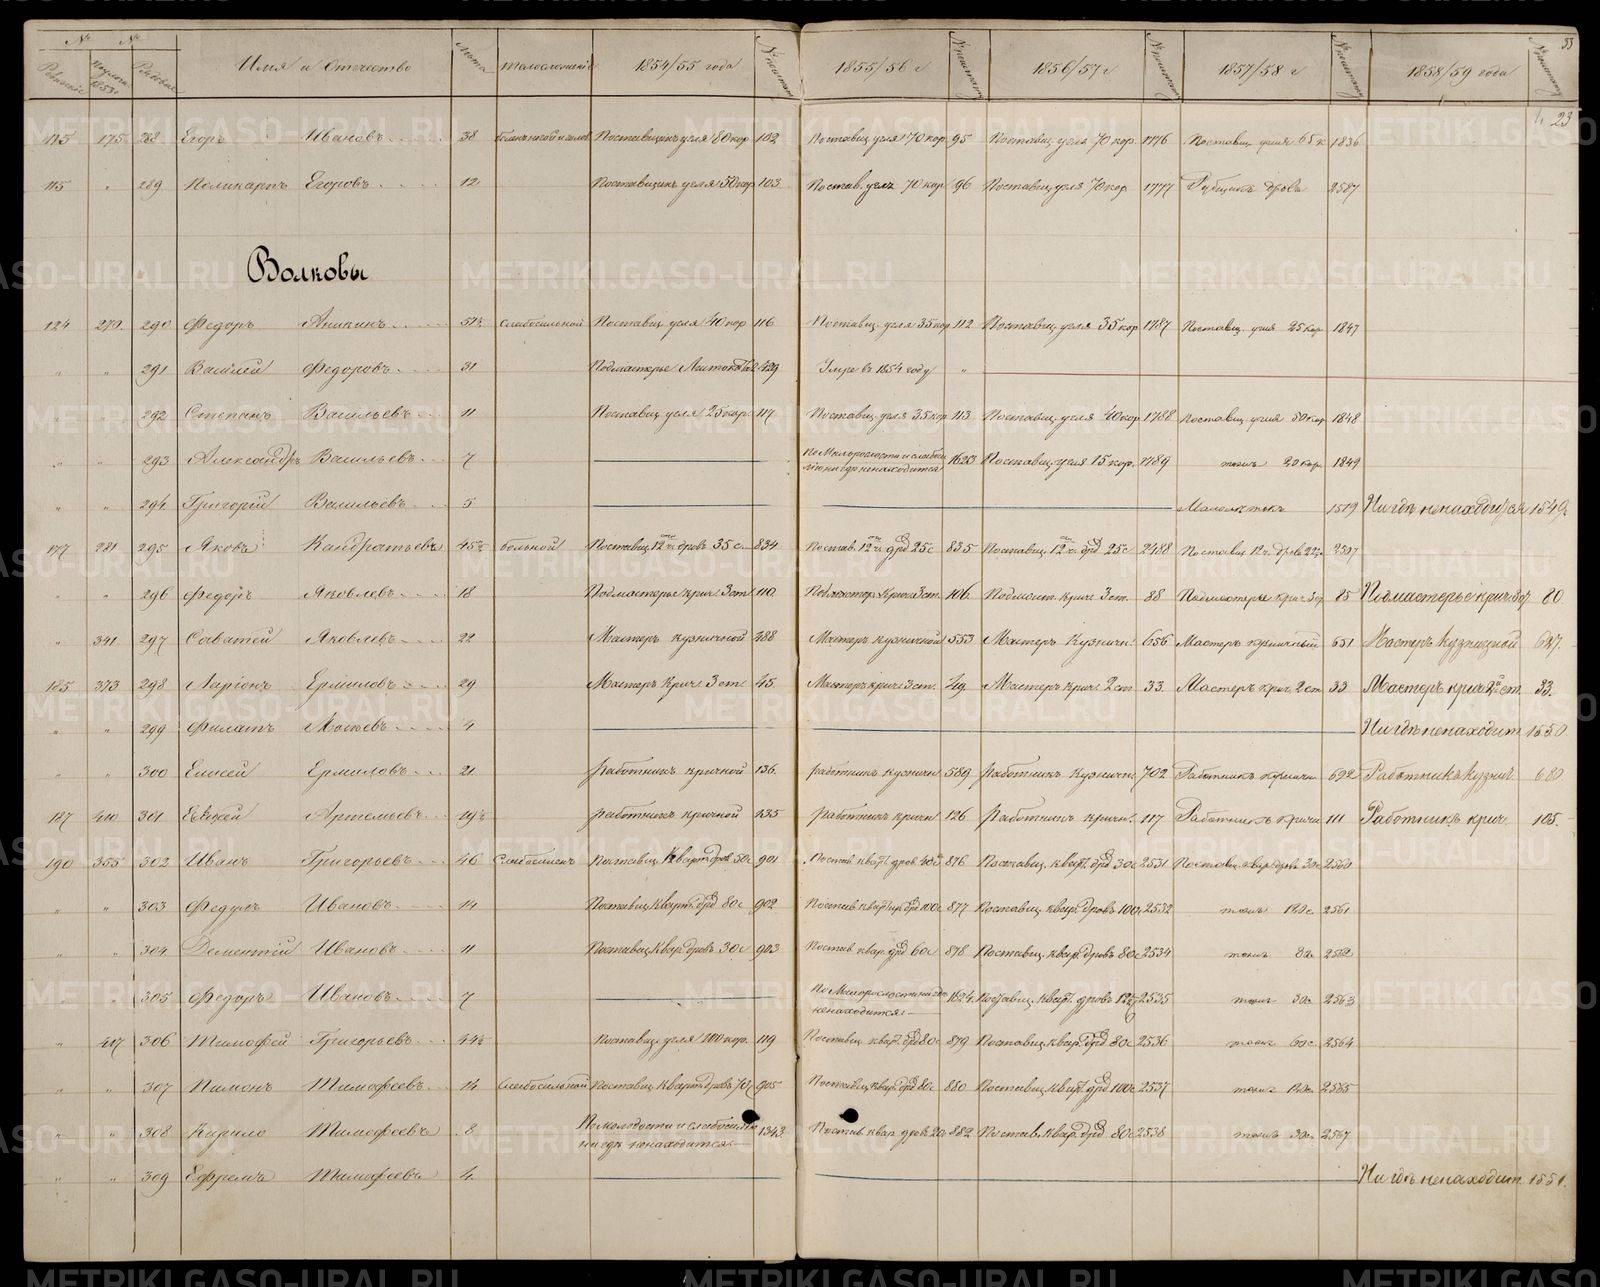 № №
Ревизские Науличн. 1853 г. Рядовые Имя и Отечество Лета Телосложение 1854/55 года № по штату 1855/56 г № по штату 1856/57 г № по штату 1857/58 г № по штату 1858/59 года № по штату
33
23
115 175 288 Егоръ Ивановъ 38 Поставщикъ угля 80 кор 102 Поставщ угля 70 кор 95 Поставщ угля 70 кор. 1776 Поставщ угля 65 к 1836
115 " 289 Поликарпъ Егоровъ 12 Поставщикъ угля 50 кор 103 Постав. угля 70 кор 96 Поставщ угля 70 кор 1777 Рубщикъ дровъ 2587
Волковы
124 270 290 Федоръ Аникинъ 57½ Слабосильной Поставщ угля 40 кор 116 Поставщ. угля 35 кор 112 Поставщ угля 35 кор 1787 Поставщ. угля 25 кор 1847
" " 291 Василей Федоровъ 31 Подмастерье 429 Умре въ 1854 году "
" " 292 Степанъ Васильевъ 11 Поставщ угля 25 кор. 117 Поставщ. угля 35 кор 113 Поставщ угля 40 кор 1788 Поставщ угля 50 кор 1848
" " 293 Александръ Васильевъ 7 По Малорослости и слабосилію ни где ненаходится 1623 Поставщ. угля 15 кор. 1789 тожъ 20 кор. 1849
" " 294 Григорей Васильевъ 5 Малолетокъ 1519 Ни где ненаходится 1549
177 281 295 Яковъ Кандратьевъ 45½ больной Поставщ 12 чет дровъ 35 с. 834 Постав. 12 ч. дро 25 с 835 Поставщ. 12 ч. дро 25 с 2488 Поставщ 12 ч. дровъ 22 2507
" " 296 Федоръ Яковлевъ 18 Подмастерье крич. 3 ст 110 Подмастер. крич 3 ст. 106 Подмаст. крич. 3 ст. 88 Подмастерье крич 3 ст 85 Подмастерье крич 3 ст 80
" 341 297 Саватей Яковлевъ 22 Мастеръ кузничной 488 Мастеръ кузничной 553 Мастеръ Кузничн. 656 Мастеръ кузничный 651 Мастеръ Кузничной 627
185 373 298 Ларіонъ Ермиловъ 29 Мастеръ крич. 3 ст 45 Мастеръ крич. 3 ст. 49 Мастеръ крич. 2 ст 33. Мастеръ крич. 2 ст 33 Мастеръ крич 2й ст. 33.
" " 299 Филатъ 4 Ни где ненаходит. 1550
" " 300 Елисей Ермиловъ 21 Работникъ кричной 136 работникъ кузничн 589 работникъ кузничн. 702 Работникъ кузничн 692 Работникъ кузнич 680
187 410 301 Артемьевъ 19½ Работникъ кричной 235 работникъ кричн 126 работникъ кричн. 117 Работникъ кричн 111 Работникъ крич. 105
190 355 302 Иванъ Григорьевъ 46 Слабосиленъ Поставщ. Квартъ дров 50 с 901 Постав кварт. дров 40 с 876 Поставщ. кварт. дро 30 с 2531 Поставщ. квар. дров 30 с 2560
" " 303 Федулъ Ивановъ 14 Поставщ Кварт. дро 80 с 902 Постав кварт дро 100 с 877 Поставщ. квар. дровъ 100 с 2532 тожъ 120 с 2561
" " 304 Дементій Ивановъ 11 Поставщ Квар. дровъ 30 с 903 Постав квар. дро 60 с 878 Поставщ. квар дровъ 80 с 2534 тожъ 80 с 2562
" " 305 Федоръ Ивановъ 7 По Малорослости ни где ненаходится 1624 Поставщ. Кварт. дровъ 12 с 2535 тожъ 30 с 2563
" 417 306 Тимофей Григорьевъ 44½ Поставщ. угля 100 кор. 119 Поставщ кварт дро 80 с 879 Поставщ. квар. дро 80 с 2536 тожъ 60 с 2564
" " 307 Пимонъ Тимофеевъ 14 Слабосильной Поставщ. кварт дровъ 70 с 905 Поставщ. квар. дро 80 с 880 Поставщ Кварт. дро 100 с 2537 тожъ 120 с 2565
" " 308 Кирило Тимофеевъ 8 По молодости и слабосилію ни где ненаходится 1343 Постав. квар дровъ 20 с 882 Постав. квар. дро 80 с 2538 тожъ 30 с 2567
" " 309 Ефремъ Тимофеевъ 4 Ни где ненаходит. 1551
METRIKI.GASO-URAL.RU